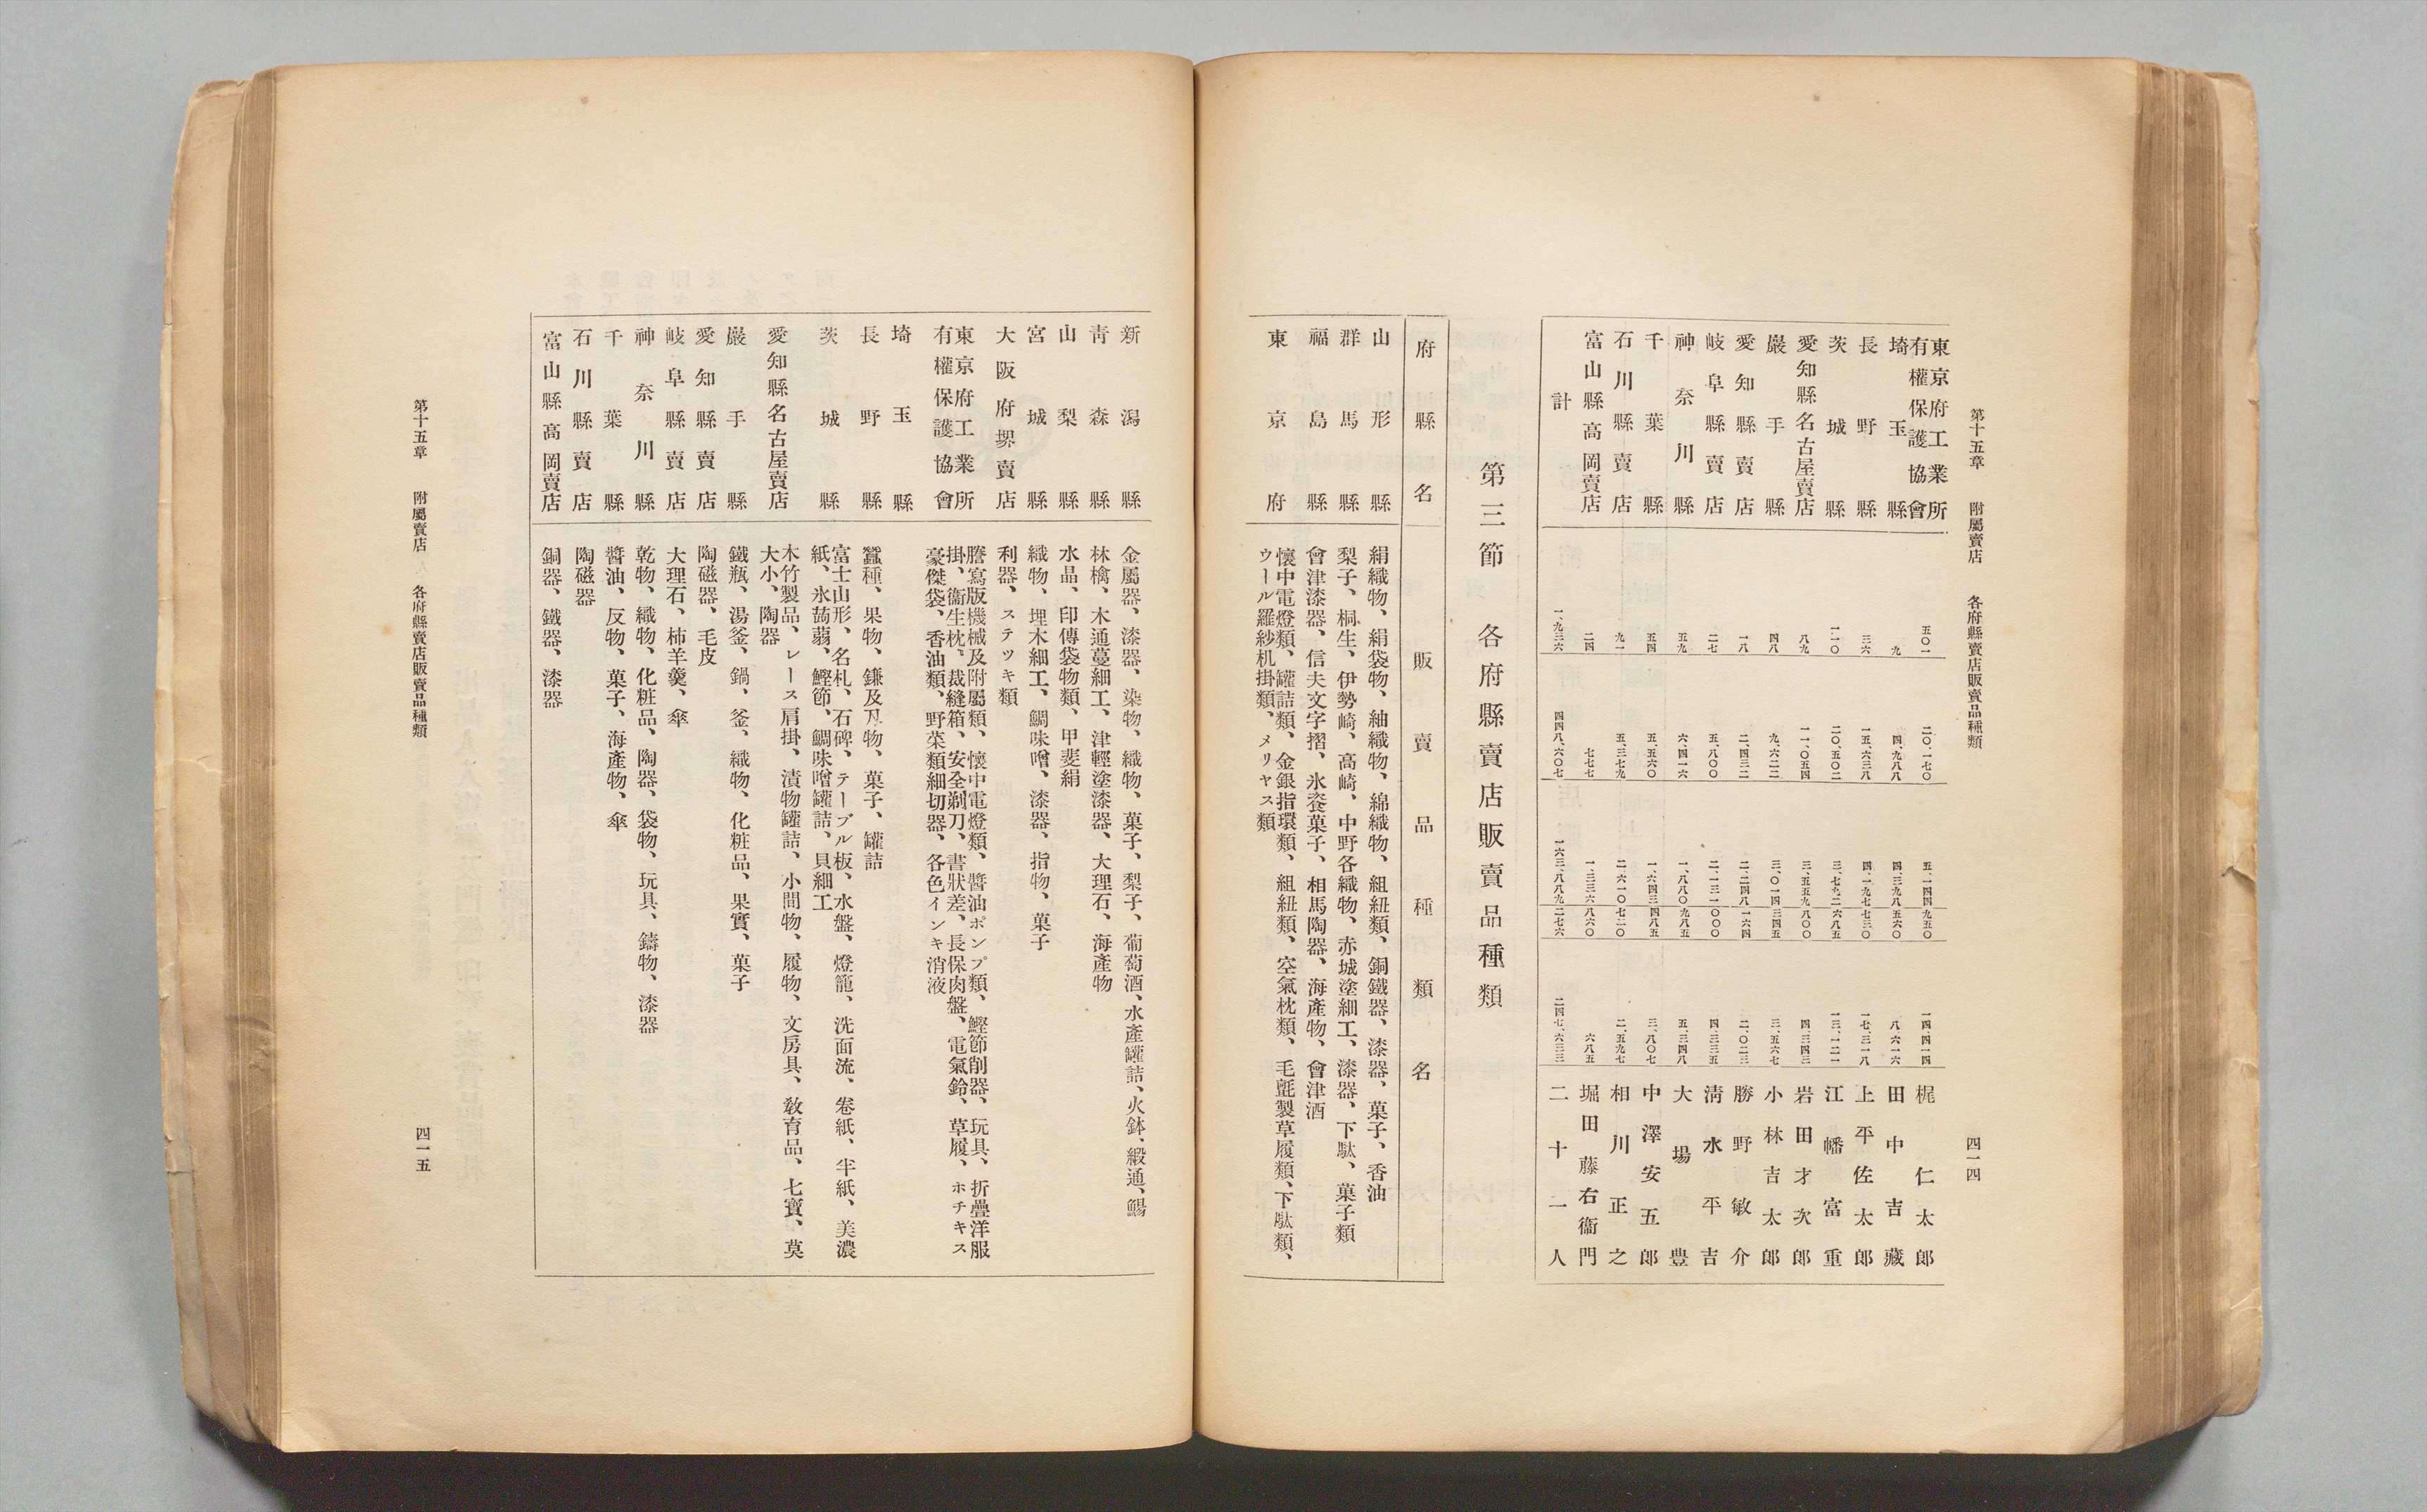 第十五章　附屬賣店　各府縣賣店販賣品種類　四一四
東京府工業所有權保護協會　五〇一　二〇、一七〇　五、一四四九五〇　一四、四一四　梶仁太郎
埼玉縣　九　四、九八八　四、三九八五六〇　八、六一六　田中吉藏
長野縣　三六　一五、六三八　四、一九七七三〇　一七、三一八　上平佐太郎
茨城縣　一一〇　二〇、五〇二　三、七九二六八五　一三、一二一　江幡富重
愛知縣名古屋賣店　八九　一一、〇五四　三、五五九八〇〇　四、三四三　岩田才次郎
巖手縣　四八　九、六二二　三、〇一四三四五　三、五六七　小林吉太郎
愛知縣賣店　一八　二、四三二　二、二四八一六四　二、〇二三　勝野敏介
岐阜縣賣店　二七　五、八〇〇　二、一三一〇〇〇　四、三三五　淸水平吉
神奈川縣　五九　六、四一六　一、八八〇九八五　五、三四八　大場豊
千葉縣　五四　五、五六〇　一、六四三四八五　三、八〇七　中澤安五郎
石川縣賣店　九一　五、三七九　二、六一〇七二〇　二、五九七　相川正之
富山縣高岡賣店　二四　七七七　一、三三六八六〇　六八五　堀田藤右衞門
計　一、九三六　四四八、六〇七　一六三、八八九二七六　二四七、六三三　二十二人
第三節　各府縣賣店販賣品種類
府縣名　販賣品種類名
山形縣　絹織物、絹袋物、紬織物、綿織物、組紐類、銅鐵器、漆器、菓子、香油
群馬縣　梨子、桐生、伊勢崎、高崎、中野各織物、赤城塗細工、漆器、下駄、菓子類
福島縣　會津漆器、信夫文字摺、氷餈菓子、相馬陶器、海產物、會津酒
東京府　懷中電燈類、罐詰類、金銀指環類、組紐類、空氣枕類、毛氈製草履類、下駄類、
ウール羅紗机掛類、メリヤス類
新潟縣　金屬器、漆器、染物、織物、菓子、梨子、葡萄酒、水產罐詰、火鉢、緞通、鰑
靑森縣　林檎、木通蔓細工、津輕塗漆器、大理石、海產物
山梨縣　水晶、印傳袋物類、甲斐絹
宮城縣　織物、埋木細工、鯛味噌、漆器、指物、菓子
大阪府堺賣店　利器、ステツキ類
東京府工業所有權保護協會　謄寫版機械及附屬類、懷中電燈類、醬油ポンプ類、鰹節削器、玩具、折疊洋服
掛、衞生枕、裁縫箱、安全剃刀、書狀差、長保肉盤、電氣鈴、草履、ホチキス
豪傑袋、香油類、野菜類細切器、各色インキ消液
埼玉縣
長野縣　蠶種、果物、鎌及刄物、菓子、罐詰
茨城縣　富士山形、名札、石碑、テーブル板、水盤、燈籠、洗面流、卷紙、半紙、美濃
紙、氷蒟蒻、鰹節、鯛味噌罐詰、貝細工
愛知縣名古屋賣店　木竹製品、レース肩掛、漬物罐詰、小間物、履物、文房具、敎育品、七寶、茣
大小、陶器
巖手縣　鐵瓶、湯釜、鍋、釜、織物、化粧品、果實、菓子
愛知縣賣店　陶磁器、毛皮
岐阜縣賣店　大理石、柿羊羹、傘
神奈川縣　乾物、織物、化粧品、陶器、袋物、玩具、鑄物、漆器
千葉縣　醬油、反物、菓子、海產物、傘
石川縣賣店　陶磁器
富山縣高岡賣店　銅器、鐵器、漆器
第十五章　附屬賣店　各府縣賣店販賣品種類　四一五